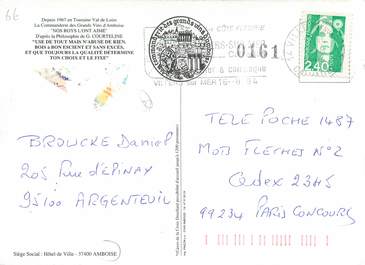 66
Depuis 1967 en Touraine Val de Loire
La Commanderie des Grands Vins d'Amboise
"NOS ROYS L'ONT AIMÉ"
D'après la Philosophie de G. COURTELINE
"USE DE TOUT MAIS N'ABUSE DE RIEN,
BOIS A BON ESCIENT ET SANS EXCÈS,
ET QUE TOUJOURS LA QUALITÉ DÉTERMINE
TON CHOIX ET LE FIXE"
des grands vins
CÔTE FLEURIE
0161
2,40
BROUCKE Daniel
205 Rue d'EPINAY
95100 ARGENTEUIL
TELE POCHE 1487
MOTS FLECHES N°2
Cedex 2345
99234 PARIS CONCOURS
Siège Social : Hôtel de Ville - 37400 AMBOISE